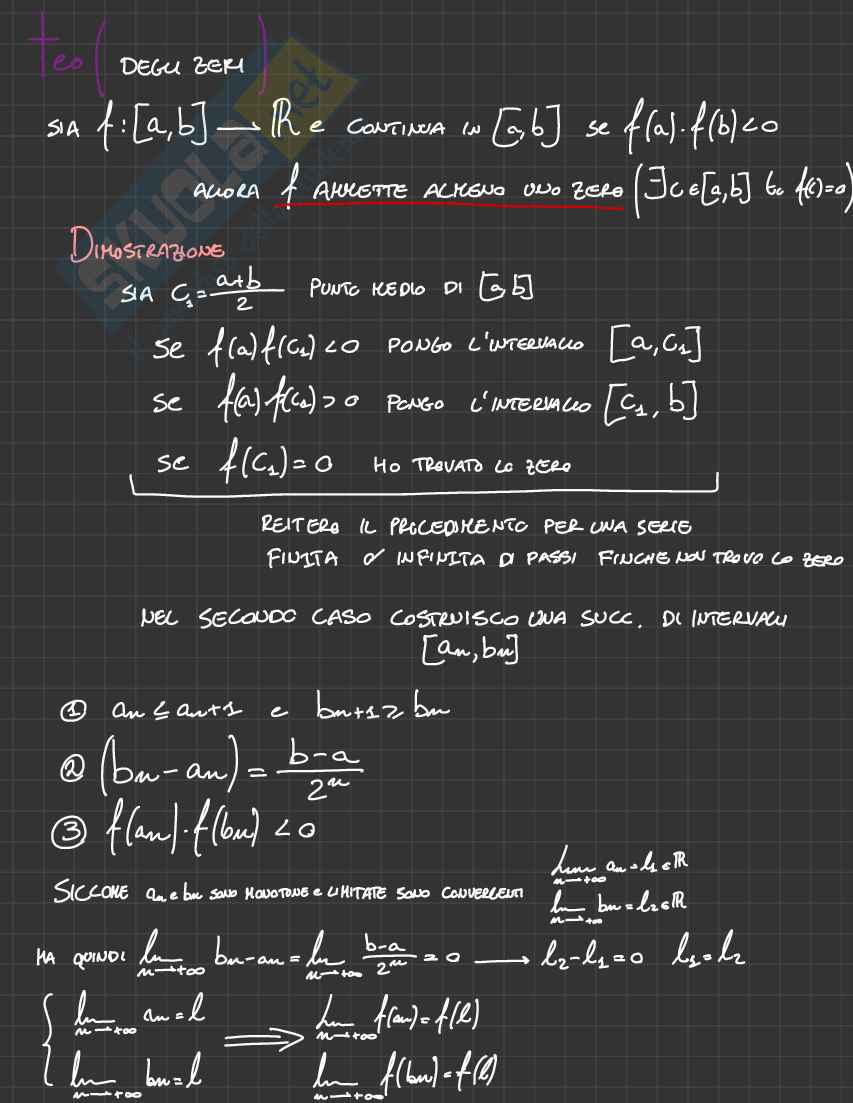 teo ( DEGLI ZERI )
SIA f:[a,b] → R e CONTINUA IN [a,b] se f(a)·f(b)<0
ALLORA f AMMETTE ALMENO UNO ZERO (∃c∈[a,b] tc f(c)=0)
DIMOSTRAZIONE
SIA C₁ = (a+b)/2 PUNTO MEDIO DI [a b]
se f(a) f(C₁) <0 PONGO L'INTERVALLO [a, C₁]
se f(a) f(C₁) > 0 PONGO L'INTERVALLO [C₁, b]
se f(C₁) = 0 HO TROVATO LO ZERO
REITERO IL PROCEDIMENTO PER UNA SERIE
FINITA O INFINITA DI PASSI FINCHE NON TROVO LO ZERO
NEL SECONDO CASO COSTRUISCO UNA SUCC. DI INTERVALLI
[an, bn]
① an ≤ an+1 e bn+1 ≥ bn
② (bn - an) = (b-a)/2ⁿ
③ f(an)·f(bn) < 0
SICCOME an e bn SONO MONOTONE e LIMITATE SONO CONVERGENTI
lim n→+∞ an = l₁ ∈ R
lim n→+∞ bn = l₂ ∈ R
MA QUINDI lim n→+∞ bn - an = lim n→+∞ (b-a)/2ⁿ = 0 → l₂ - l₁ = 0 l₁ = l₂
{ lim n→+∞ an = l ⟹ lim n→+∞ f(an) = f(l)
lim n→+∞ bn = l lim n→+∞ f(bn) = f(l)
SKUOLA.net